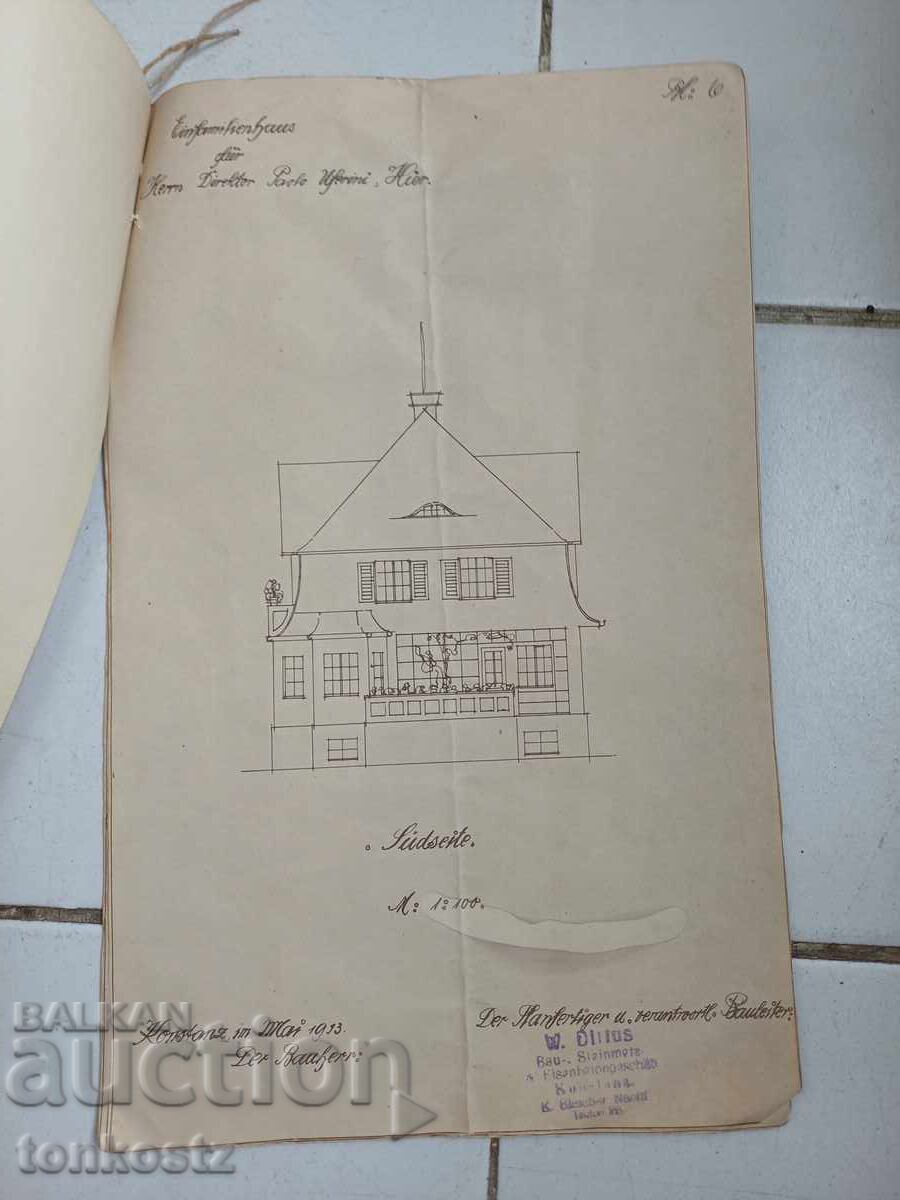 Bl: 6
Einfamilienhaus
für
Herrn Direktor Paolo , Hier.
Südseite.
M: 1:100.
Konstanz im Mai 1913.
Der Bauherr:
Der Planfertiger u. verantwortl. Bauleiter:
W.
Bau-, Steinmetz-
& Eisenbetongeschäft
Konstanz
K. Nachf.
BALKAN
auction
tonkostz